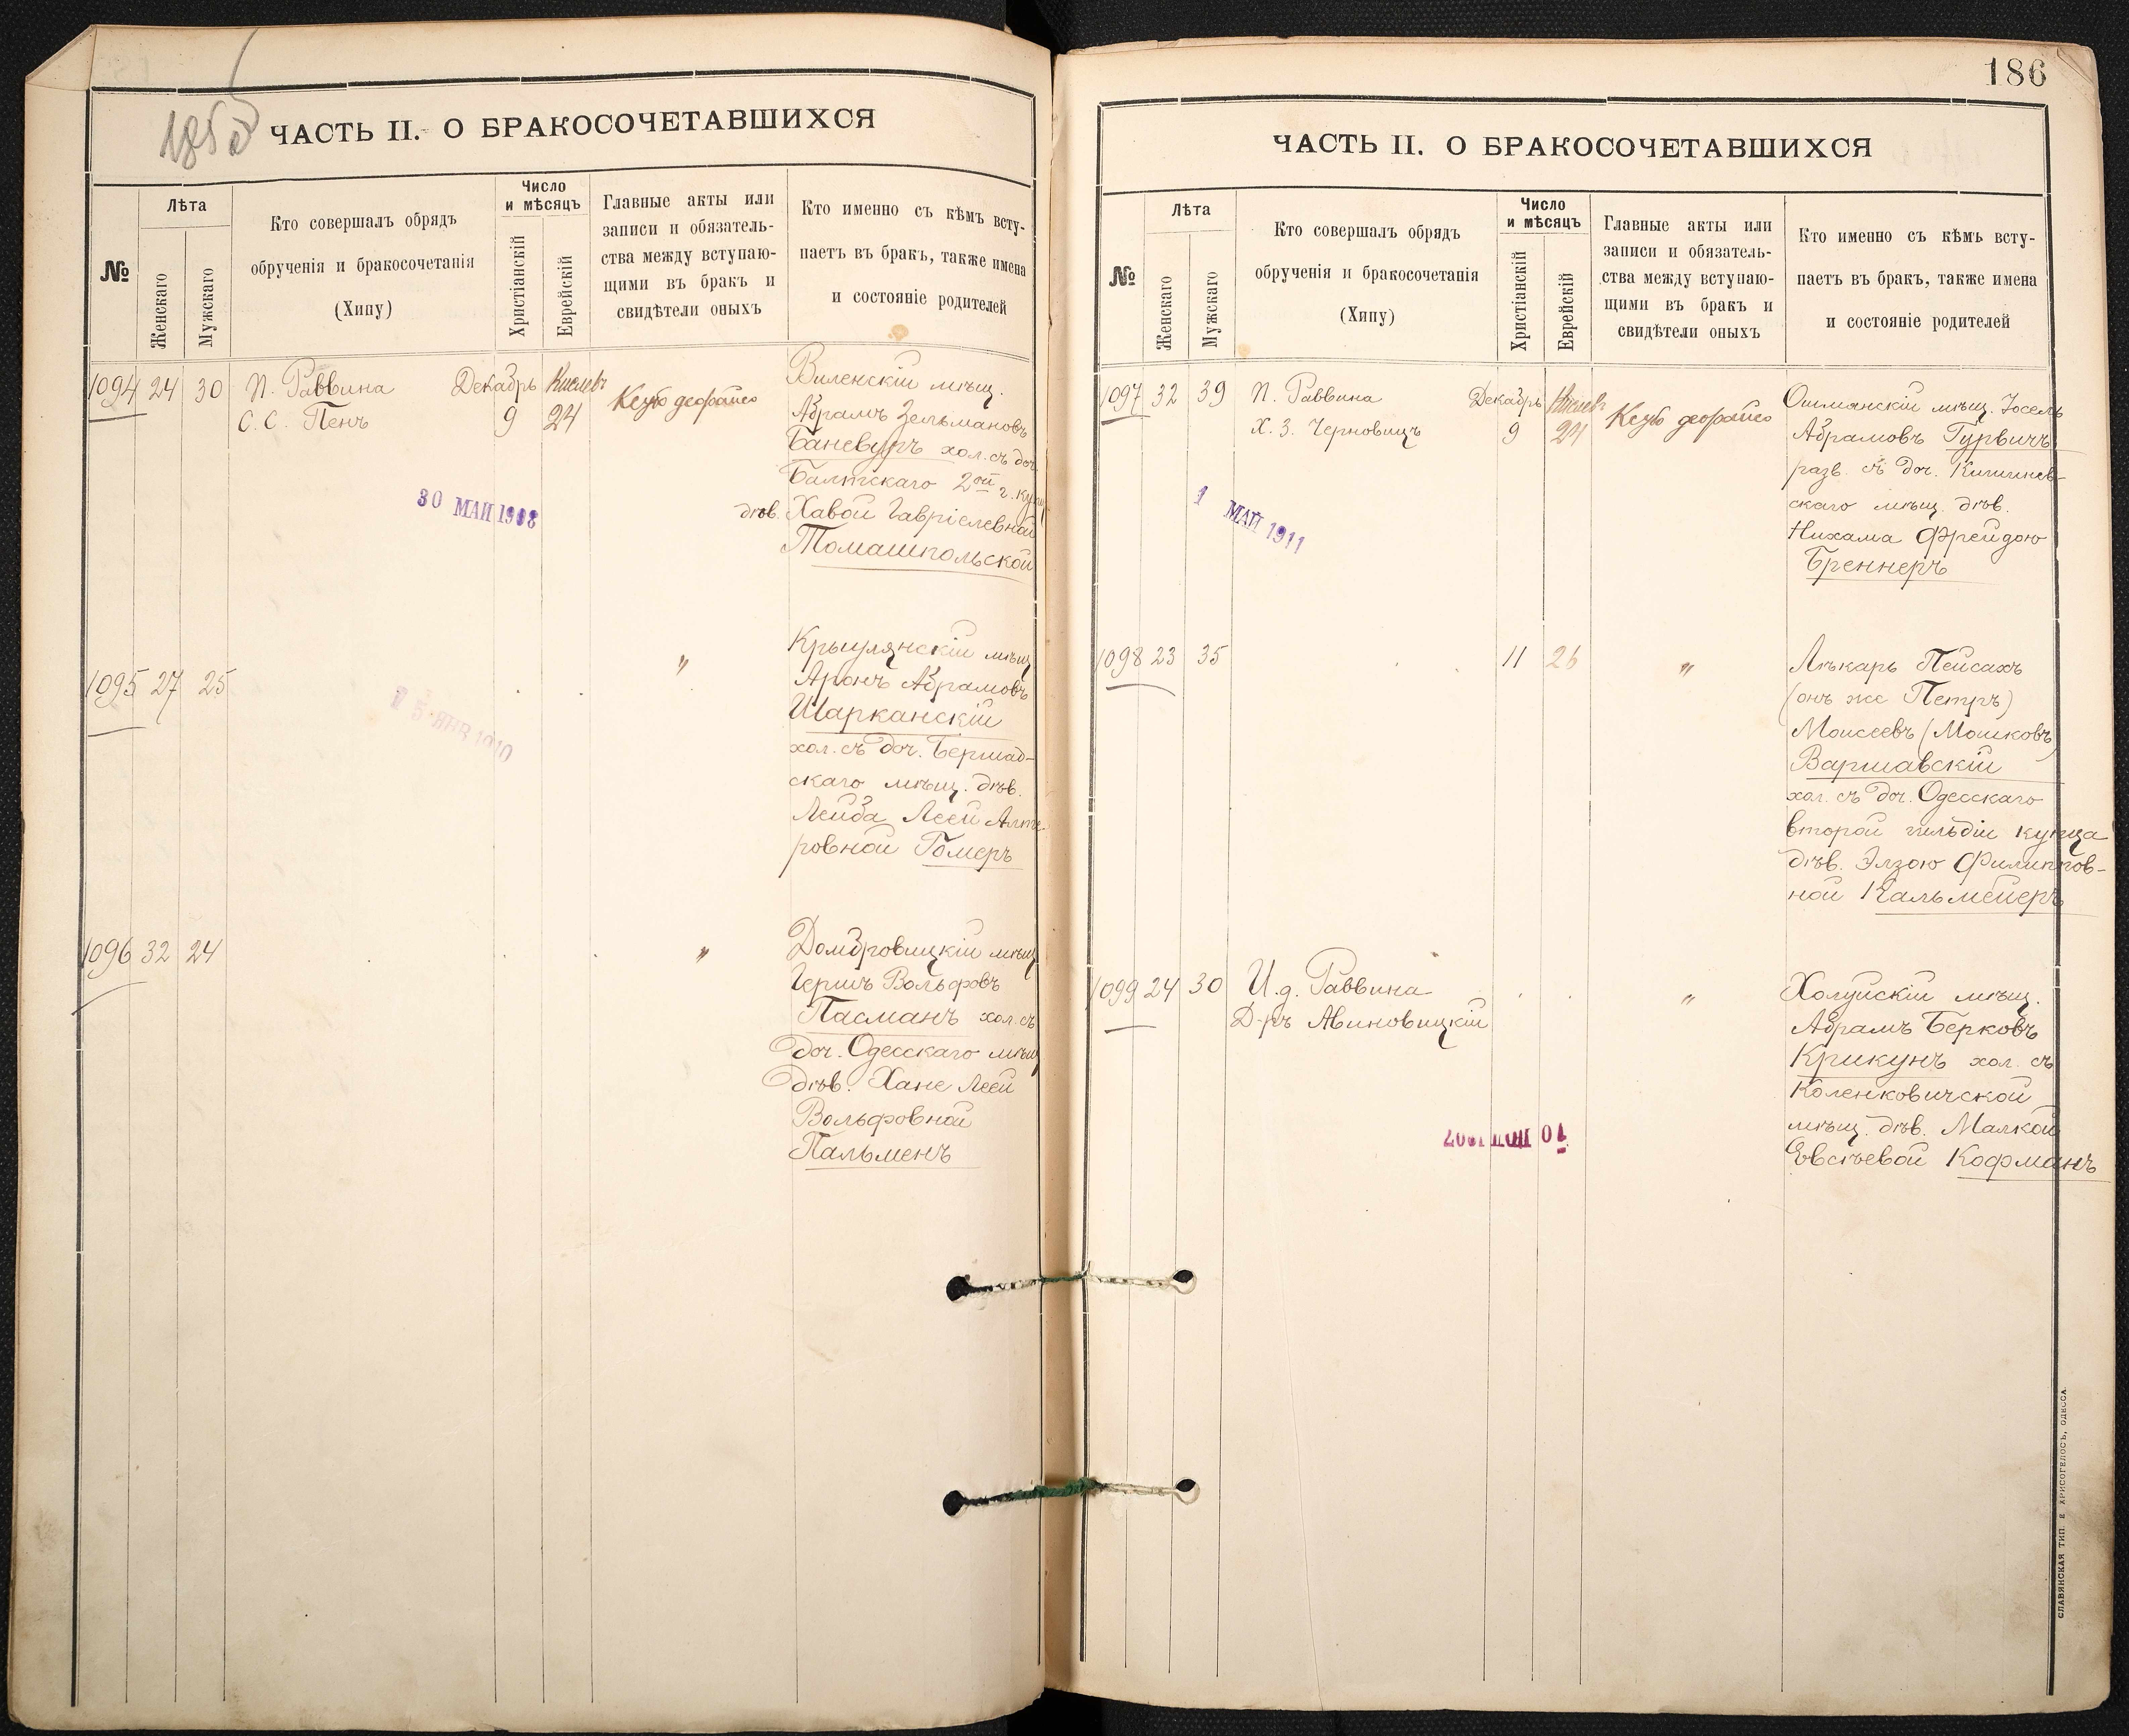 185
ЧАСТЬ II. О БРАКОСОЧЕТАВШИХСЯ
№
Лѣта
Женскаго
Мужскаго
Кто совершалъ обрядъ
обрученія и бракосочетанія
(Хипу)
Число
и мѣсяцъ
Христіанскій
Еврейскій
Главные акты или
записи и обязатель-
ства между вступаю-
щими въ бракъ и
свидѣтели оныхъ
Кто именно съ кѣмъ всту-
паетъ въ бракъ, также имена
и состояніе родителей
1094 24 30 П. Раввина Декабрь Кислевъ
С. С. Пенъ 9 24
Виленскій мѣщ.
Абрамъ Зельмановъ
Баневуръ хол. съ доч.
Балтскаго 2ой г. куп.
дѣв. Хавой Гавріелевной
Томашпольской
30 МАЙ 1908
1095 27 25 "
Крыулянскій мѣщ
Аронъ Абрамовъ
Шарканскій
хол. съ доч. Бершад-
скаго мѣщ. дѣв.
Лейба Леей Альте-
ровной Гомеръ
1 5 ЯНВ 1910
1096 32 24 "
Домбровицкій мѣщ
Гершъ Вольфовъ
Пасманъ хол. съ
доч. Одесскаго мѣщ
дѣв. Хане Леей
Вольфовной
Пальменъ
186
ЧАСТЬ II. О БРАКОСОЧЕТАВШИХСЯ
№
Лѣта
Женскаго
Мужскаго
Кто совершалъ обрядъ
обрученія и бракосочетанія
(Хипу)
Число
и мѣсяцъ
Христіанскій
Еврейскій
Главные акты или
записи и обязатель-
ства между вступаю-
щими въ бракъ и
свидѣтели оныхъ
Кто именно съ кѣмъ всту-
паетъ въ бракъ, также имена
и состояніе родителей
1097 32 39 П. Раввина Декабрь Кислевъ
Х. З. Черновицъ 9 24
Ошмянскій мѣщ. Іосель
Абрамовъ Гурвичъ
разв. съ доч. Кишинев-
скаго мѣщ. дѣв.
Нихама Фрейдою
Бреннеръ
1 МАЙ 1911
1098 23 35 11 26 "
Лѣкарь Пейсахъ
(онъ же Петръ)
Моисеевъ (Мошковъ)
Варшавскій
хол. съ доч. Одесскаго
второй гильдіи купца
дѣв. Элзою Филиппов-
ной Кальмейеръ
1099 24 30 И. д. Раввина "
Д-ръ Авиновицкій
Холуйскій мѣщ.
Абрамъ Берковъ
Крикунъ хол. съ
Коленковичской
мѣщ. дѣв. Малкой
Евсѣевой Кофманъ
10 1907
СЛАВЯНСКАЯ ТИП. Е ХРИСОГЕЛОСЪ, ОДЕССА.